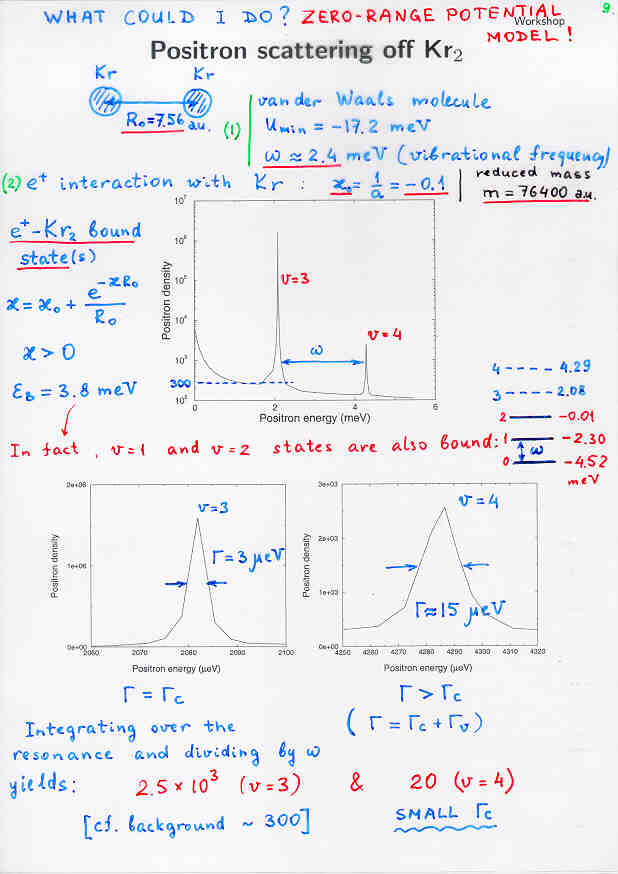 WHAT COULD I DO? ZERO-RANGE POTENTIAL MODEL! 9.
Workshop
Positron scattering off Kr₂
Kr Kr
R₀=7.56 au.
(1) van der Waals molecule
Umin = -17.2 meV
ω ≈ 2.4 meV (vibrational frequency)
(2) e⁺ interaction with Kr : ϰ₀ = 1/a = -0.1 | reduced mass
m = 76400 au.
e⁺-Kr₂ bound
state(s)
ϰ = ϰ₀ + e^(-ϰR₀)/R₀
ϰ > 0
ε_B = 3.8 meV
Positron density
10⁷
10⁶
10⁵
10⁴
10³
300
10²
0 2 4 6
Positron energy (meV)
υ=3
υ=4
ω
4 ---- 4.29
3 ---- 2.08
2 — -0.01
1 — -2.30
ω
0 — -4.52
meV
In fact, υ=1 and υ=2 states are also bound:
Positron density
2e+06
1e+06
0e+00
2060 2070 2080 2090 2100
Positron energy (μeV)
υ=3
Γ = 3 μeV
Positron density
3e+03
2e+03
1e+03
0e+00
4250 4260 4270 4280 4290 4300 4310 4320
Positron energy (μeV)
υ=4
Γ≈15 μeV
Γ = Γc
Γ > Γc
(Γ = Γc + Γυ)
Integrating over the
resonance and dividing by ω
yields: 2.5 × 10³ (υ=3) & 20 (υ=4)
[cf. background ~ 300]
SMALL Γc